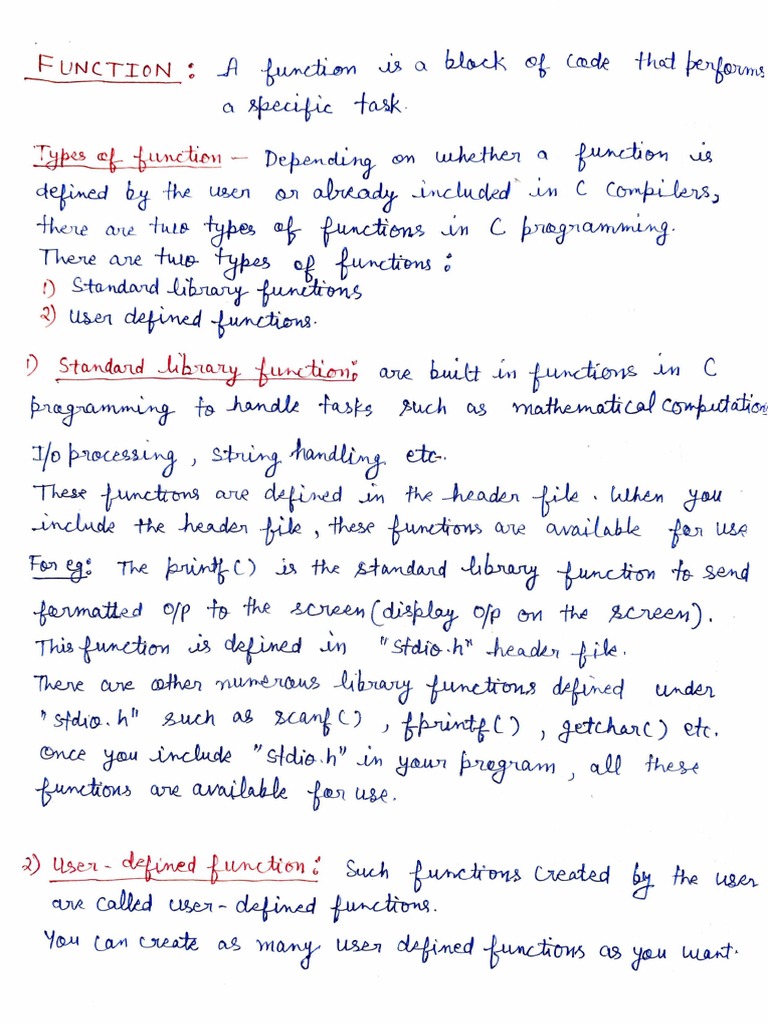 FUNCTION : A function is a block of code that performs
a specific task.
Types of function - Depending on whether a function is
defined by the user or already included in C compilers,
there are two types of functions in C programming.
There are two types of functions :
1) Standard library functions
2) User defined functions.
1) Standard library function: are built in functions in C
programming to handle tasks such as mathematical computation
I/o processing , string handling etc.
These functions are defined in the header file. When you
include the header file, these functions are available for use
For eg: The printf() is the standard library function to send
formatted o/p to the screen (display o/p on the screen).
This function is defined in "stdio.h" header file.
There are other numerous library functions defined under
"stdio.h" such as scanf() , fprintf() , getchar() etc.
Once you include "stdio.h" in your program, all these
functions are available for use.
2) User-defined function: Such functions created by the user
are called user-defined functions.
You can create as many user defined functions as you want.